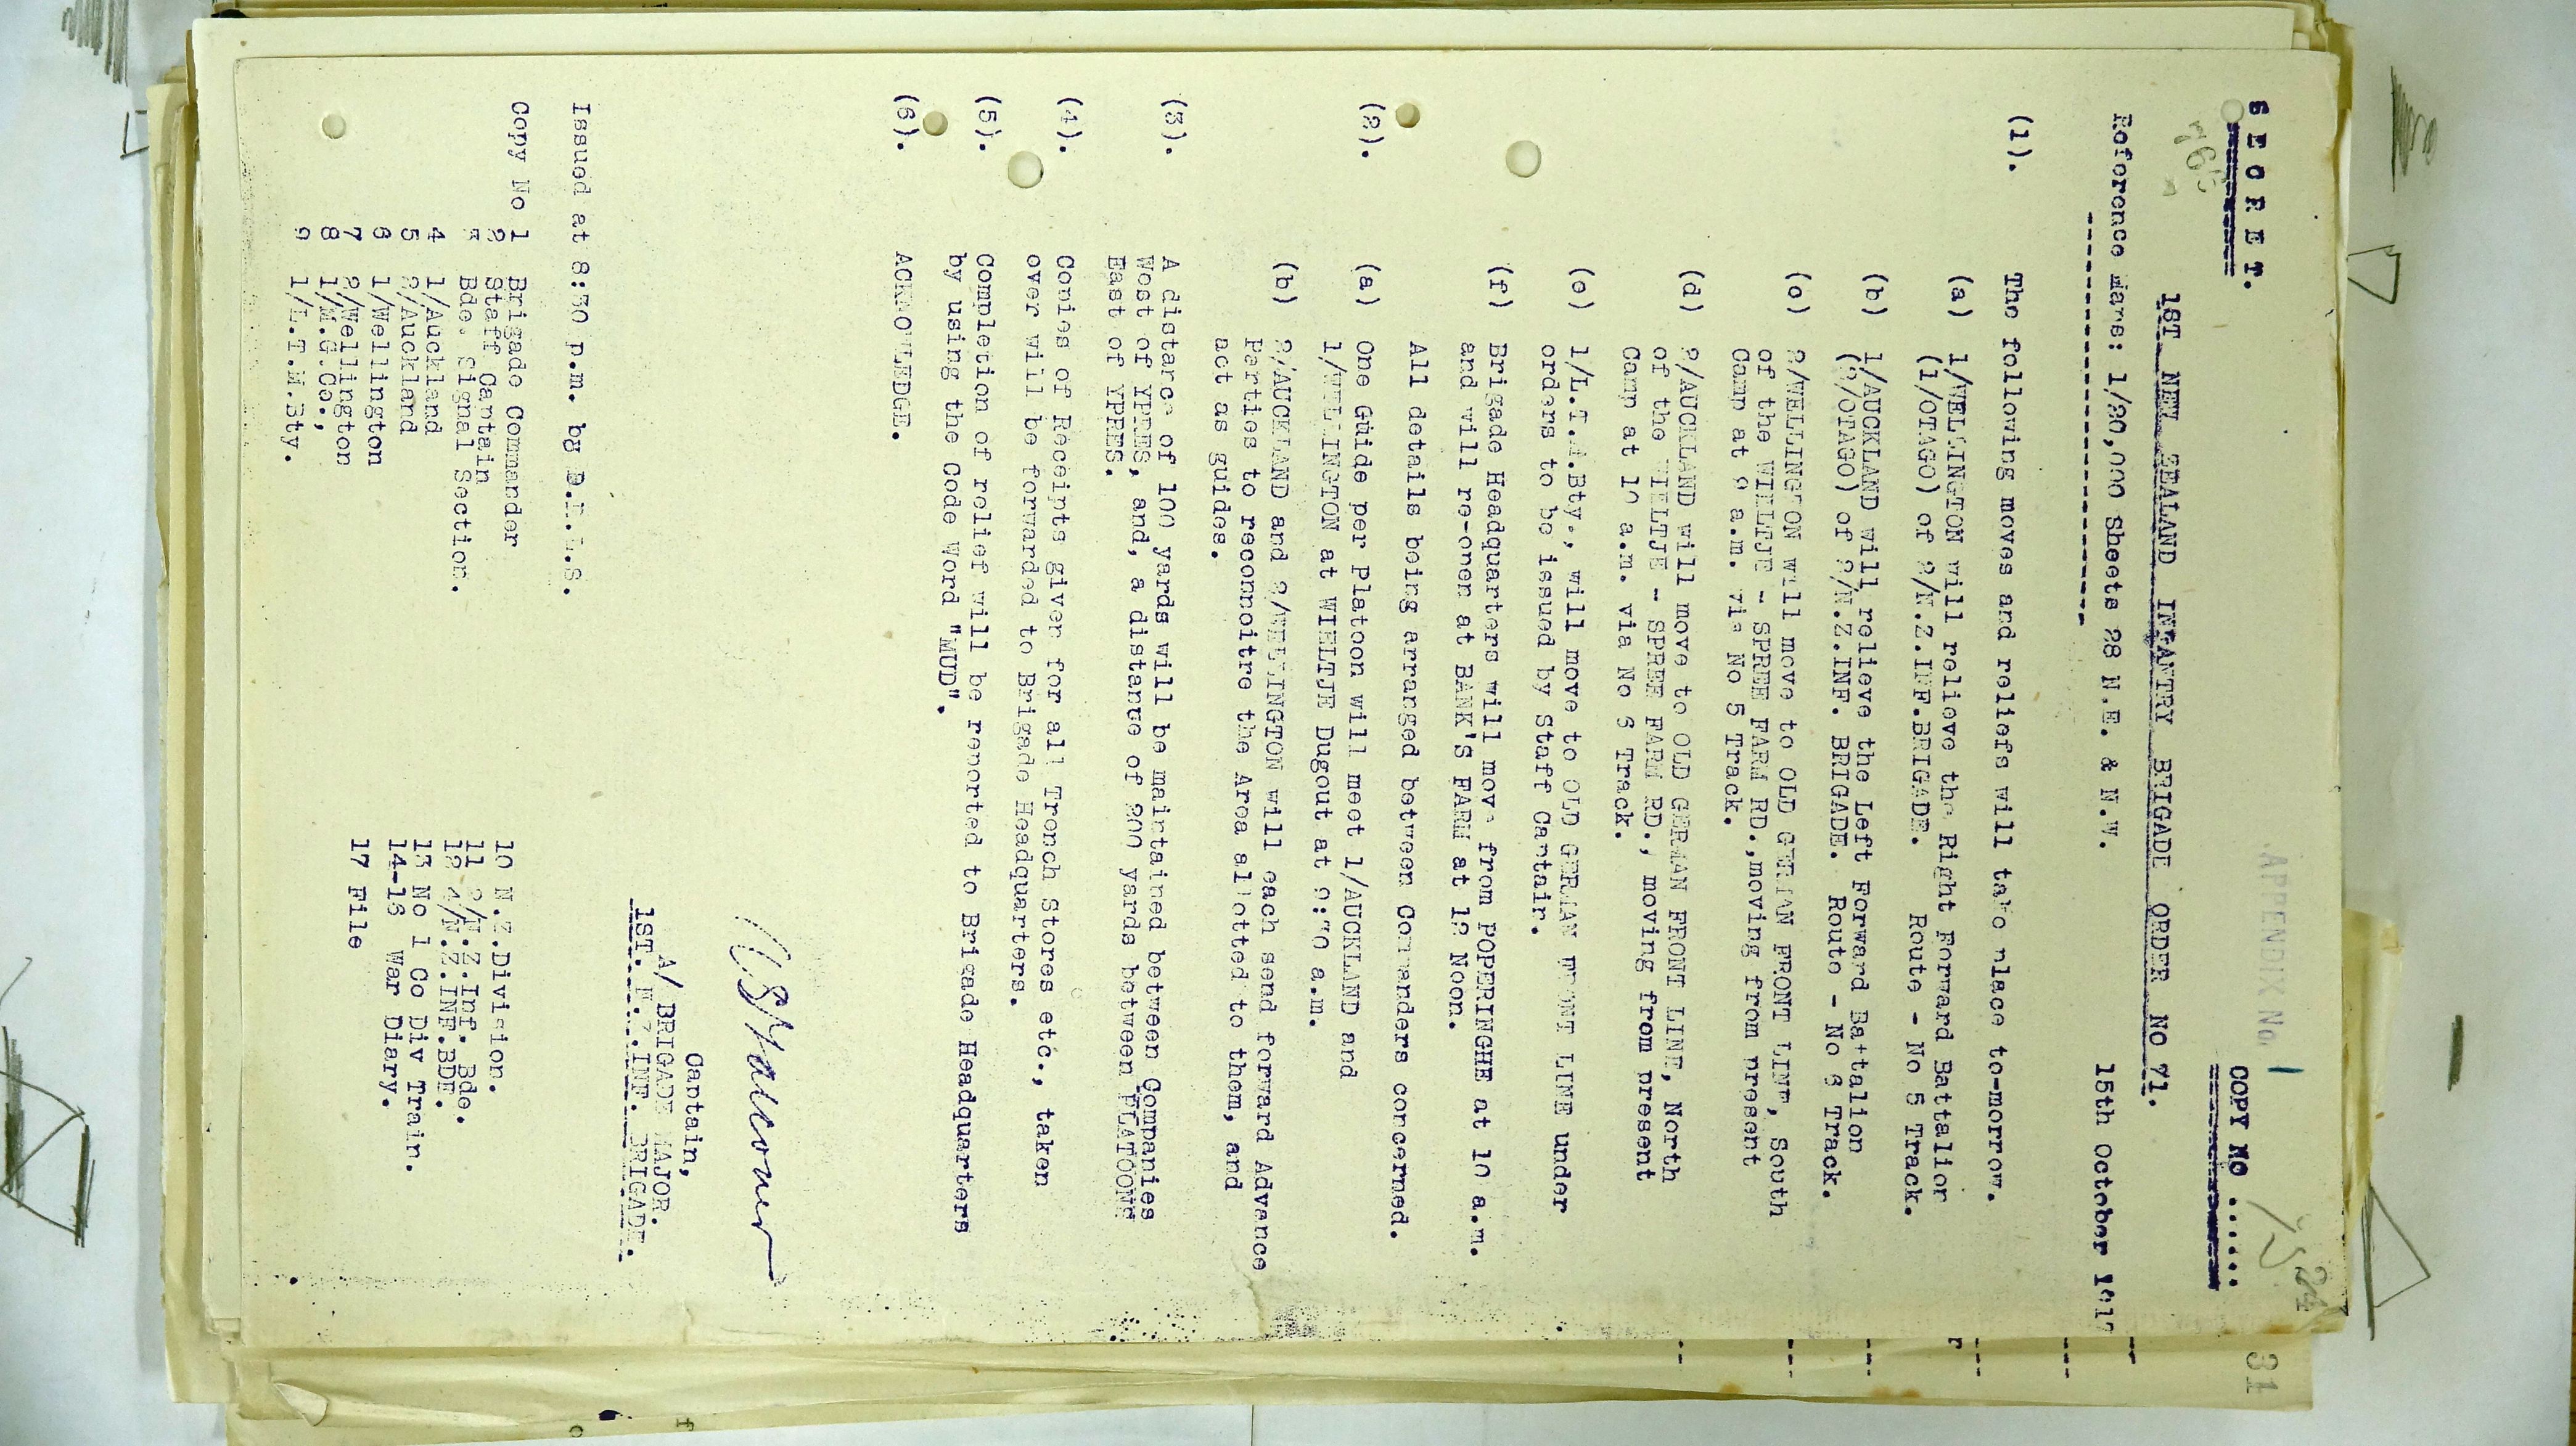 SECRET.
APPENDIX No. 1
COPY NO ......
24
31
1ST NEW ZEALAND INFANTRY BRIGADE ORDER NO 71.
Reference Maps: 1/20,000 Sheets 28 N.E. & N.W.
15th October 1917
(1). The following moves and reliefs will take place to-morrow.
(a) 1/WELLINGTON will relieve the Right Forward Battalion
(1/OTAGO) of 2/N.Z.INF.BRIGADE. Route - No 5 Track.
(b) 1/AUCKLAND will relieve the Left Forward Battalion
(2/OTAGO) of 2/N.Z.INF. BRIGADE. Route - No 6 Track.
(c) 2/WELLINGTON will move to OLD GERMAN FRONT LINE, South
of the WIELTJE - SPREE FARM RD.,moving from present
Camp at 9 a.m. via No 5 Track.
(d) 2/AUCKLAND will move to OLD GERMAN FRONT LINE, North
of the WIELTJE - SPREE FARM RD., moving from present
Camp at 10 a.m. via No 6 Track.
(e) 1/L.T.M.Bty., will move to OLD GERMAN FRONT LINE under
orders to be issued by Staff Captain.
(f) Brigade Headquarters will move from POPERINGHE at 10 a.m.
and will re-open at BANK'S FARM at 12 Noon.
All details being arranged between Commanders concerned.
(2). (a) One Guide per Platoon will meet 1/AUCKLAND and
1/WELLINGTON at WIELTJE Dugout at 9:30 a.m.
(b) 2/AUCKLAND and 2/WELLINGTON will each send forward Advance
Parties to reconnoitre the Area allotted to them, and
act as guides.
(3). A distance of 100 yards will be maintained between Companies
West of YPRES, and, a distance of 200 yards between PLATOONS
East of YPRES.
(4). Copies of Receipts given for all Trench Stores etc., taken
over will be forwarded to Brigade Headquarters.
(5). Completion of relief will be reported to Brigade Headquarters
by using the Code Word "MUD".
(6). ACKNOWLEDGE.
Captain,
A/ BRIGADE MAJOR.
1ST. N.Z.INF. BRIGADE.
Issued at 8:30 p.m. by D.R.L.S.
Copy No 1 Brigade Commander
2 Staff Captain
3 Bde. Signal Section.
4 1/Auckland
5 2/Auckland
6 1/Wellington
7 2/Wellington
8 1/M.G.Co.,
9 1/L.T.M.Bty.
10 N.Z.Division.
11 2/N.Z.Inf. Bde.
12 4/N.Z.INF.BDE.
13 No 1 Co Div Train.
14-16 War Diary.
17 File